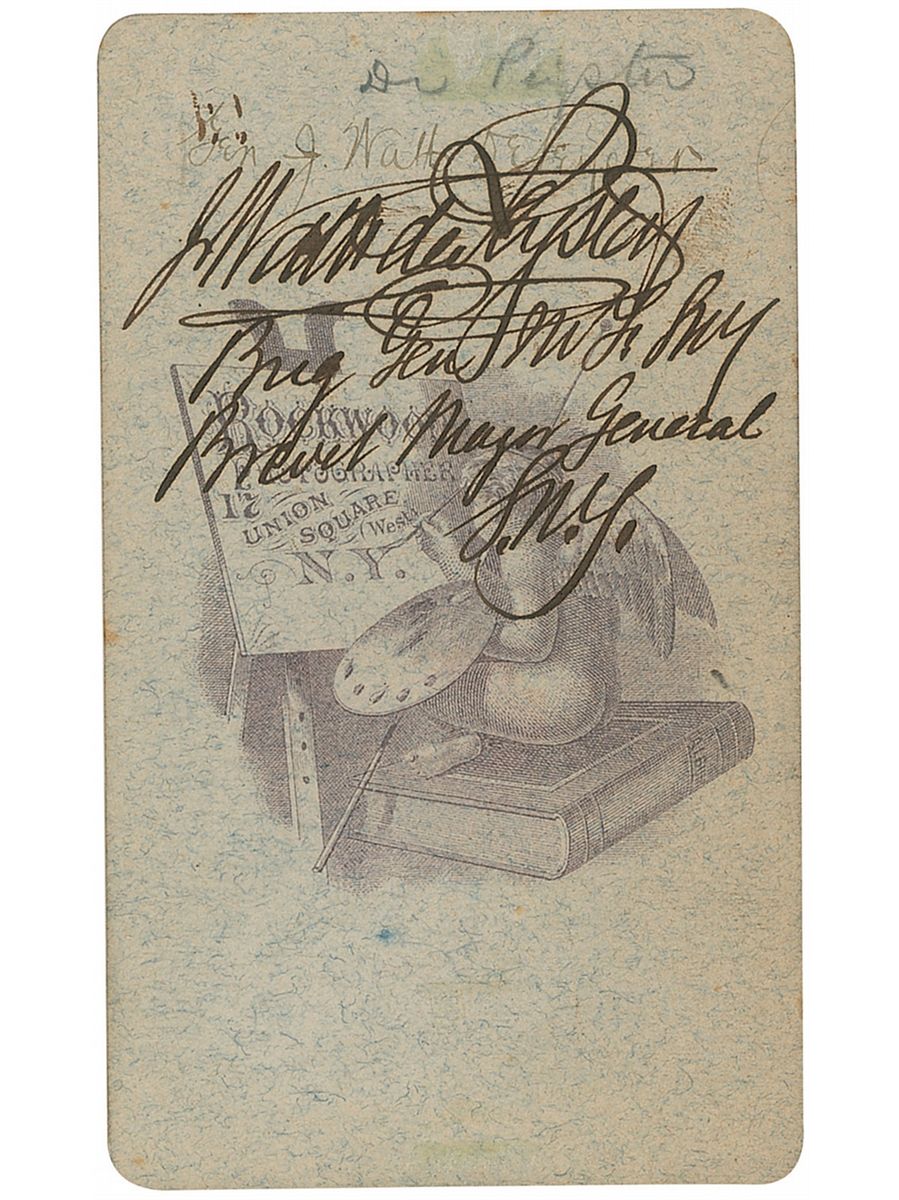 De Peyster
Gen J. Watts de Peyster
J. Watts de Peyster
Brig Gen S N Y
Brevet Major General
S.N.Y.
ROCKWOOD
PHOTOGRAPHER
17
UNION
SQUARE
(West)
N.Y.